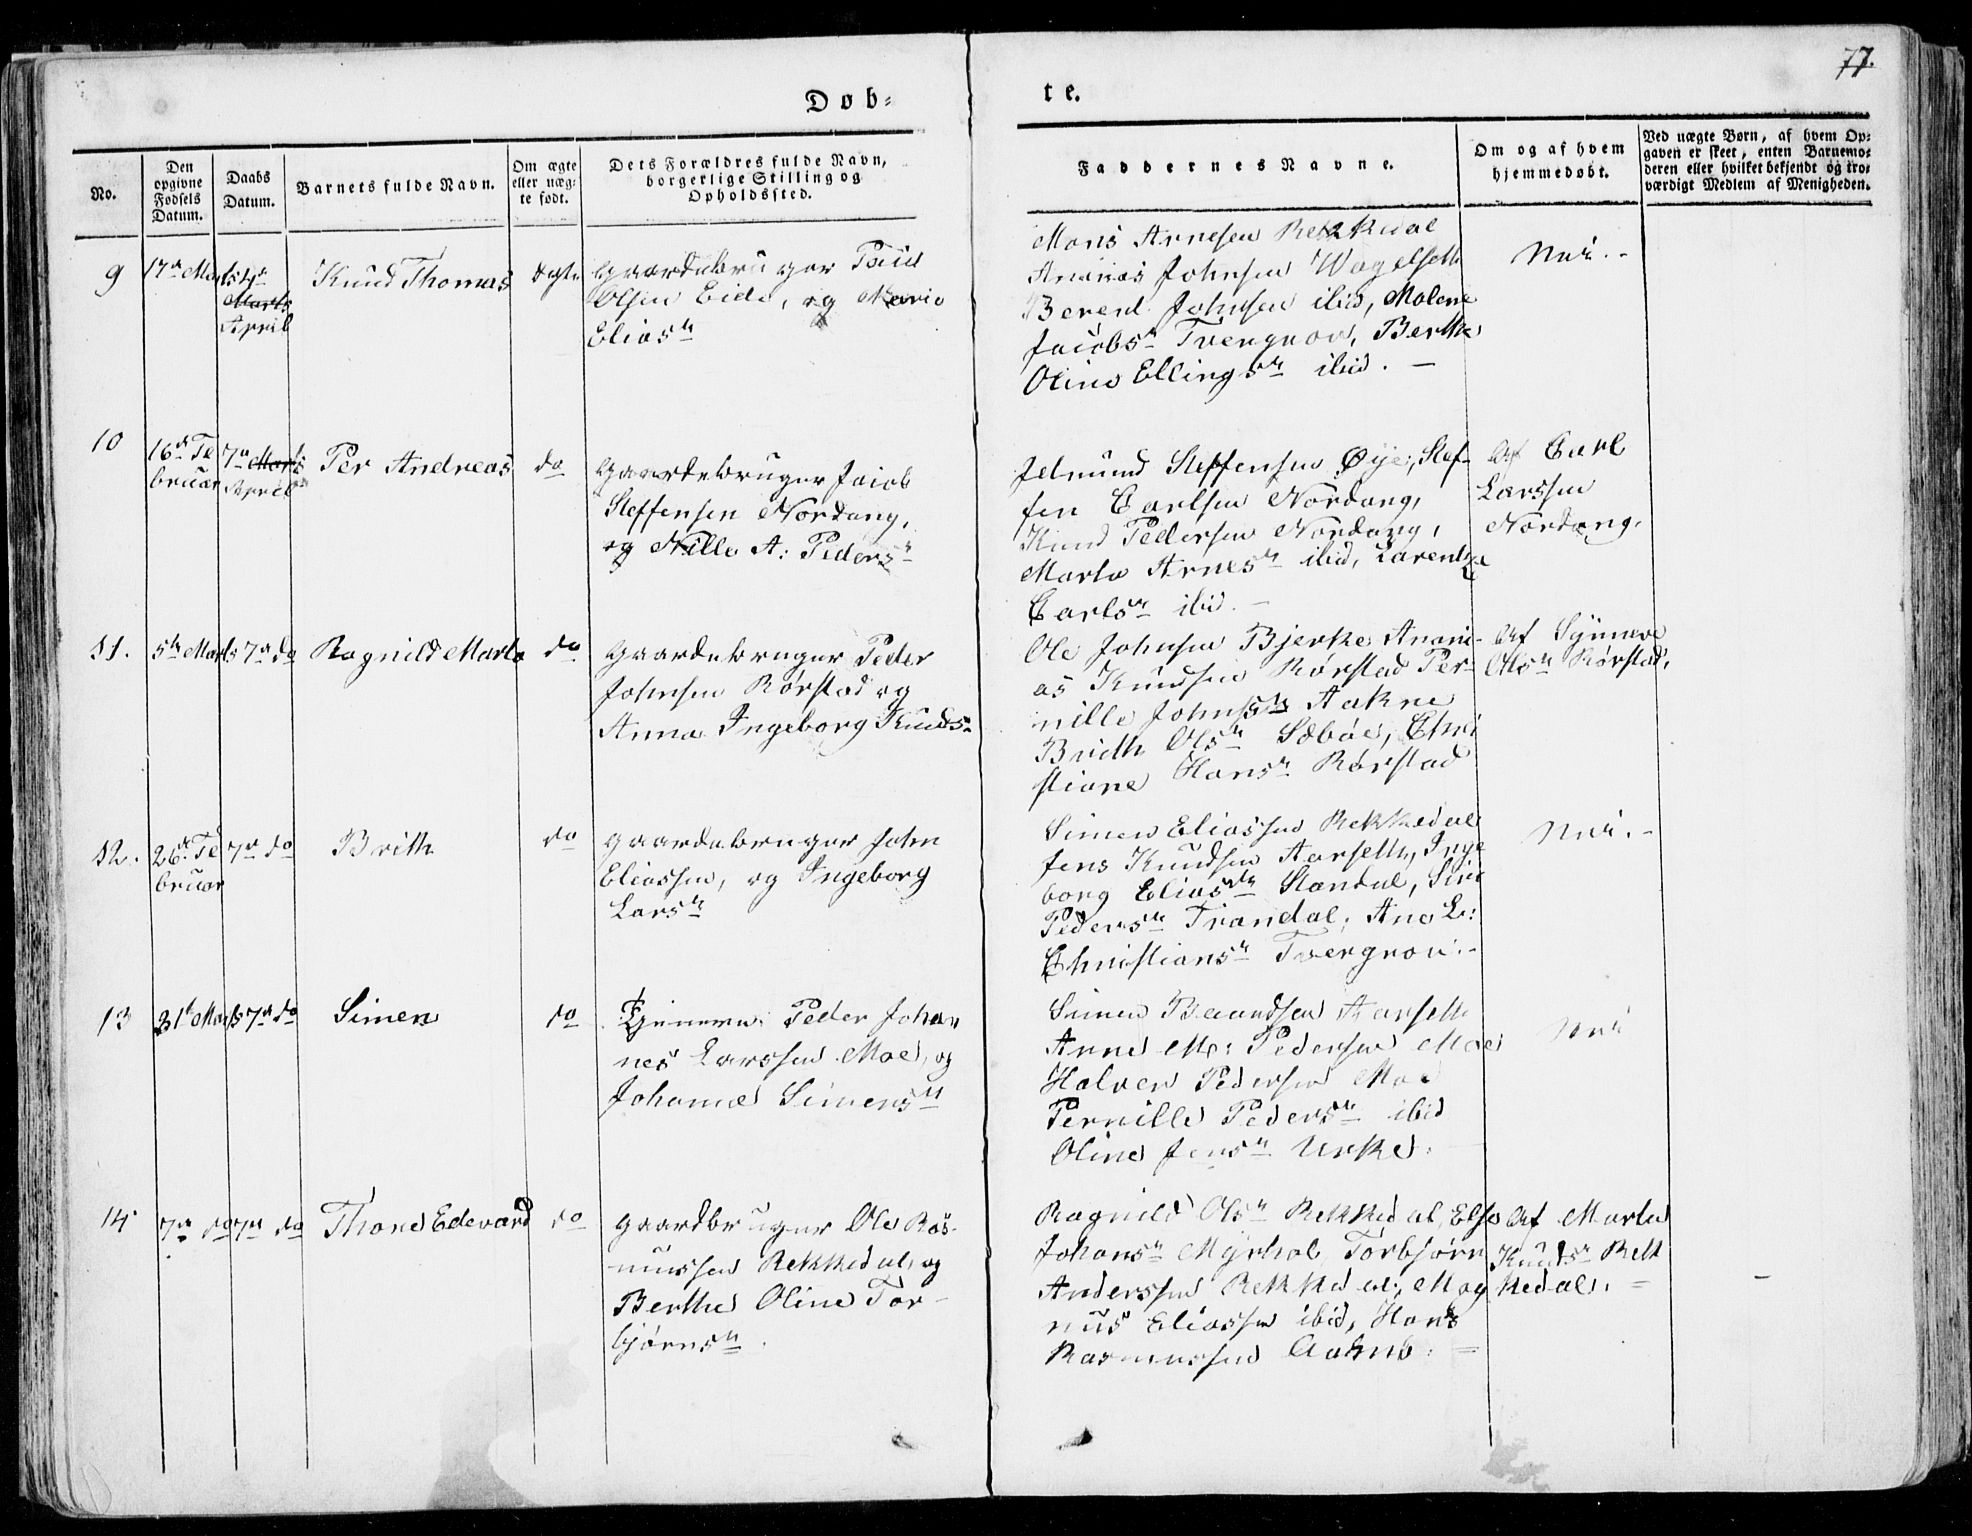 77.
Døb-
te.
No.
Den opgivne Fødsels Datum.
Daabs Datum.
Barnets fulde Navn.
Om ægte eller uægte født.
Dets Forældres fulde Navn, borgerlige Stilling og Opholdssted.
Faddernes Navne.
Om og af hvem hjemmedøbt.
Ved uægte Børn, af hvem Opgaven er skeet, enten Barnemoderen eller hvilket bekjendt og troværdigt Medlem af Menigheden.
9
17de Marts
4de Marts April
Knud Thomas
Ægte
Gaardebruger Paul
Olsen Eide, og Marie
Eliasdr
Mons Arnesen Rekkedal
Ananias Johnsen Wagelseth
Berent Johnsen ibid, Malene
Jacobsdr Tvergrov, Berthe
Oline Ellingsdr ibid. —
Nei. -
10
16de Februar
7de Marts April
Per Andreas
do
Gaardebruger Jacob
Steffensen Nordang,
og Nille A: Pedersdr
Jetmund Steffensen Øye, Stef-
fen Carlsen Nordang,
Knud Pedersen Nordang,
Marta Arnesdr ibid, Larentze
Carlsdr ibid. —
Af Carl
Larssen
Nordang.
11.
5te Marts
7de do
Ragnild Marta
do
Gaardebruger Peder
Johnsen Rørstad og
Anna Ingeborg Knuds-
Ole Johnsen Bjerke Anani-
as Knudsen Rørstad Per-
nille Johnsdr Aakne
Brith Olsdr Sæbøe, Chri
stiane Hansdr Rørstad
Af Synneve
Olsdr Rørstad.
12.
26de Februar
7de do
Brith
do
Gaardebruger John
Eliassen, og Ingeborg
Larsdr
Simen Eliassen Rekkedal
Jens Knudsen Aarseth, Inge
borg Eliasdr Standal, Siri
Pedersdr Trandal, Ane L:
Christiansdr Tvergrov. -
Nei. -
13
31te Marts
7de do
Simen
do
Peder Johan
nes Larssen Moe, og
Johanne Simensdr
Simen Aarseth
Arne M: Pedersen Moe
Halver Pedersen Moe
Pernille Pedersdr ibid
Oline Jensdr Urke.
Nei
14
7de do
7de do
Thore Edevard
do
Gaardbruger Ole Ras-
mussen Rekkedal, og
Berthe Oline Tor-
bjørnsdr.
Ragnild Olsdr Rekkedal, Else
Johansdr Myrhol, Torbjørn
Anderssen Rekkedal, Mag
nus Eliassen ibid, Hans
Rasmussen Aakne. =
Af Marte
Knudsdr Rek
kedal. =